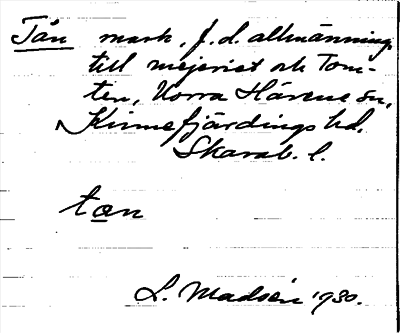 Tån mark, f.d. allmänning
till mejeriet och Tom-
ten, Norra Härene sn,
Kinnefjärdings hd,
Skarab. l.
tan
L. Madsén 1930.